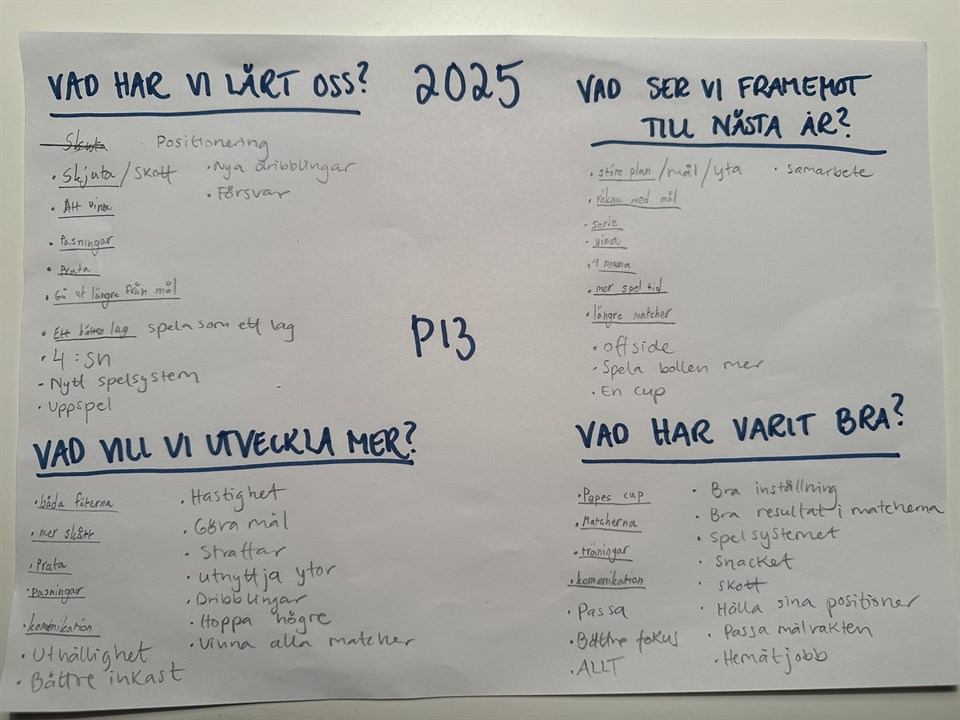 VAD HAR VI LÄRT OSS?
2025
Skuta
Positionering
• Skjuta/skott
• Nya dribblingar
• Att vina
• Försvar
• Pasningar
• Prata
• Gå ut längre från mål
• Ett bättre lag spela som ett lag
• 4:sn
- Nytt spelsystem
• Uppspel
P13
VAD SER VI FRAMEMOT
TILL NÄSTA ÅR?
• störe plan/mål/yta
• samarbete
• räkna med mål
• serie
• vina
• 9 mana
• mer spel tid
• längre matcher
• offside
- Spela bollen mer
• En cup
VAD VILL VI UTVECKLA MER?
• båda föterna
• mer skått
• Prata
• pasningar
• komunikation
• Uthållighet
• Bättre inkast
• Hastighet
• Göra mål
• Straffar
• utnyttja ytor
• Dribblingar
• Hoppa högre
• Vinna alla matcher
VAD HAR VARIT BRA?
• Pepes cup
• Matcherna
• träningar
• komunikation
• Passa
• Bättre fokus
• ALLT
• Bra inställning
• Bra resultat i matcherna
• Spelsystemet
• Snacket
• skott
• Hålla sina positioner
• Passa målvakten
• Hemåtjobb